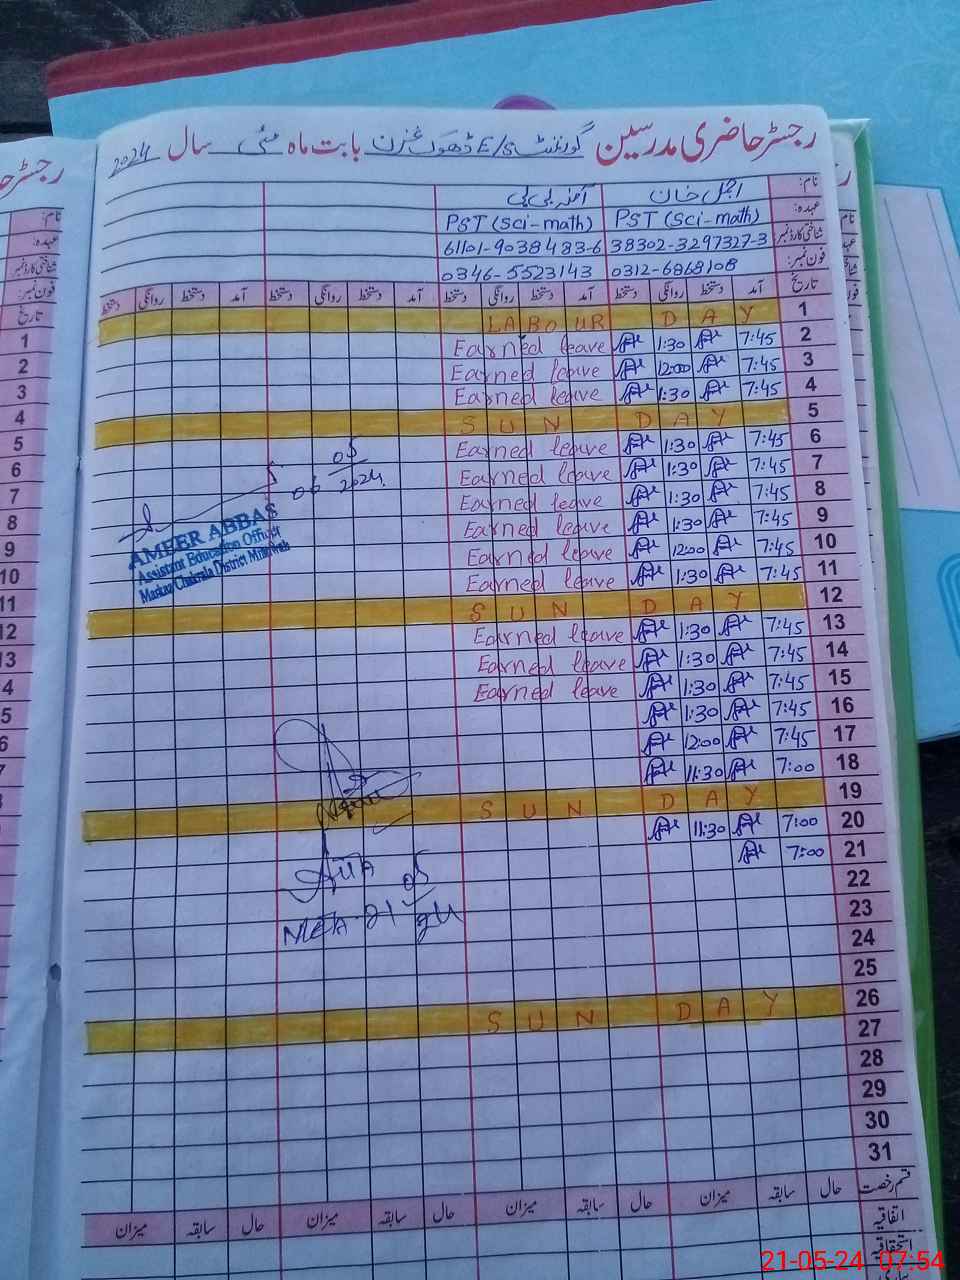 رجسٹر حاضری مدرسین گورنمنٹ E/S ڈھوک غزن بابت ماہ مئی سال 2024
نام: اجمل خان آمنہ بی بی
عہدہ: PST (Sci-math) PST (Sci-math)
شناختی کارڈ نمبر 38302-3297327-3 61101-9038483-6
فون نمبر: 0312-6868108 0346-5523143
تاریخ آمد دستخط روانگی دستخط آمد دستخط روانگی دستخط آمد دستخط روانگی دستخط آمد دستخط روانگی دستخط
LABOUR DAY 1
Earned leave 1:30 7:45 2
Earned leave 12:00 7:45 3
Earned leave 1:30 7:45 4
SUN DAY 5
Earned leave 1:30 7:45 6
Earned leave 1:30 7:45 7
Earned leave 1:30 7:45 8
Earned leave 1:30 7:45 9
Earned leave 12:00 7:45 10
Earned leave 1:30 7:45 11
SUN DAY 12
Earned leave 1:30 7:45 13
Earned leave 1:30 7:45 14
Earned leave 1:30 7:45 15
1:30 7:45 16
12:00 7:45 17
11:30 7:00 18
SUN DAY 19
11:30 7:00 20
7:00 21
22
23
24
25
SUN DAY 26
27
28
29
30
31
قسم رخصت حال سابقہ میزان حال سابقہ میزان حال سابقہ میزان حال سابقہ میزان
اتفاقیہ
استحقاقیہ
06 05 2024
AMEER ABBAS
Assistant Education Officer
Markaz Chakrala District Mianwali
MEA-21 05
رجسٹر حا
نام:
عہدہ:
شناختی کارڈ نمبر
فون نمبر:
تاریخ
1
2
3
4
5
6
7
8
9
10
11
12
13
4
5
6
7
21-05-24 07:54